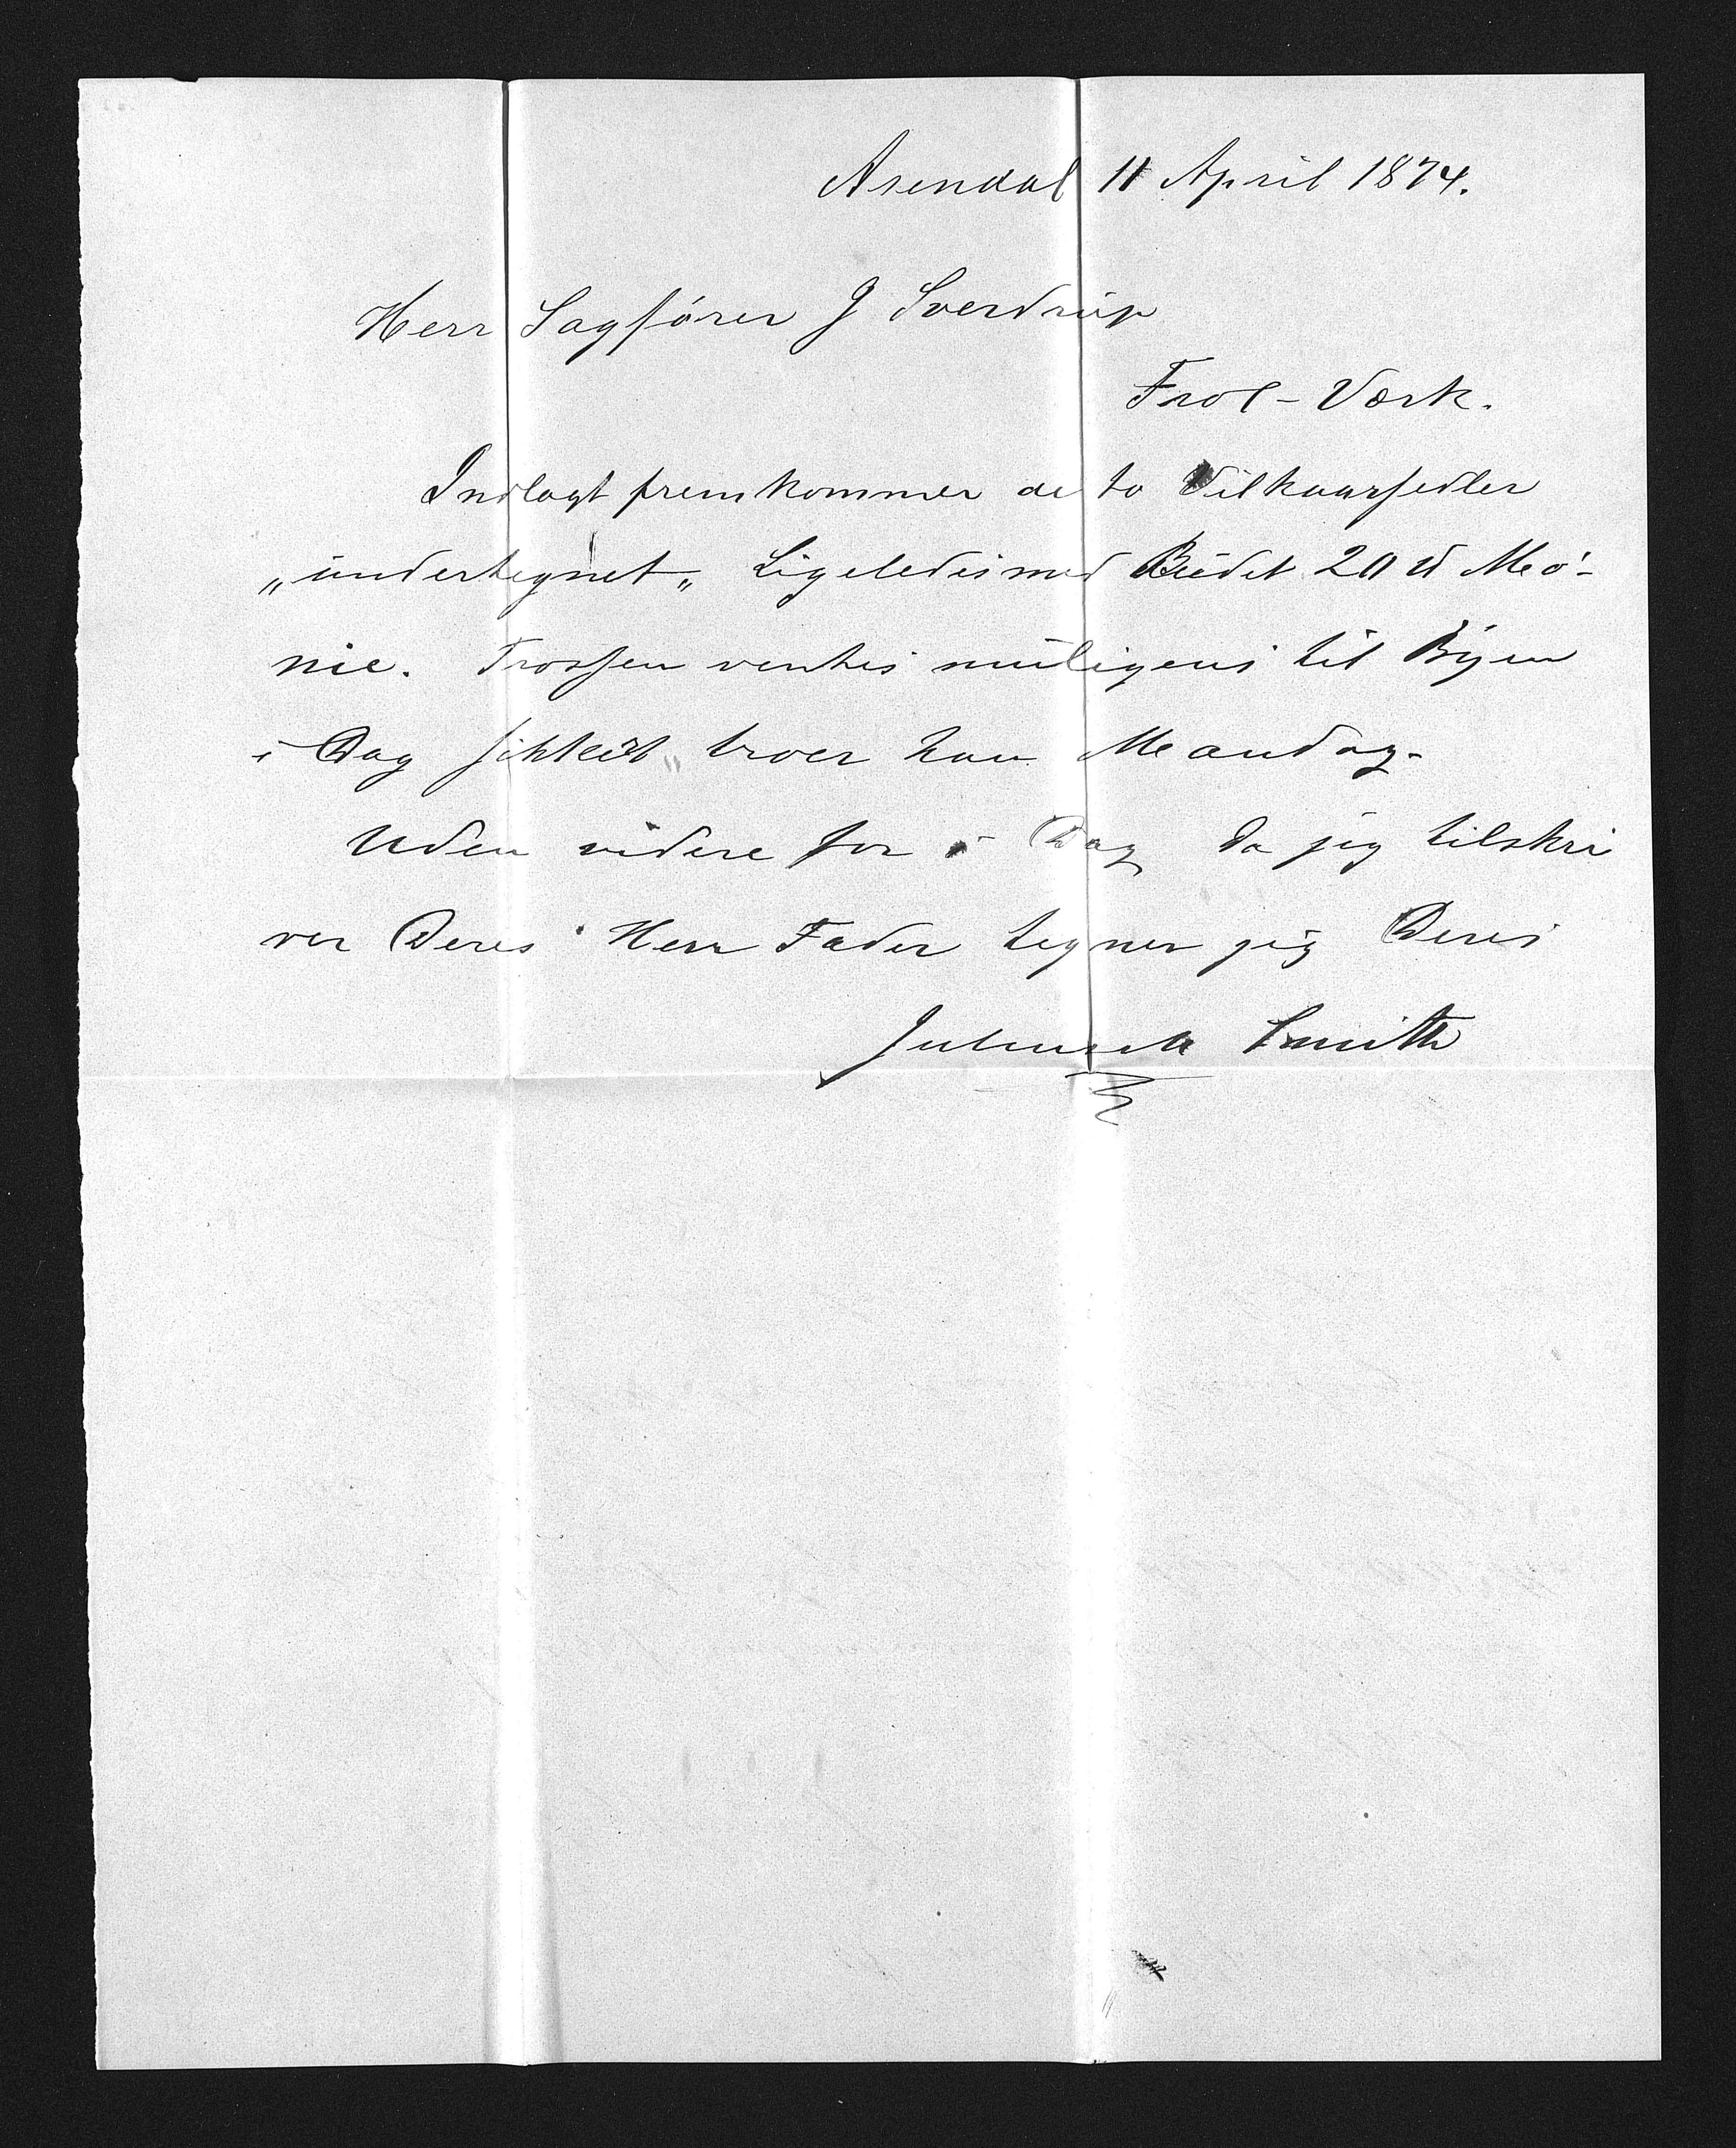 Arendal 11 April 1874.
Herr Sagfører J Sverdrup
Frol-Værk.
Indlagt fremkommer de to Vilkaarsedler
„undertegnet„ Ligeledes med Budet 20 ℔ Mø-
nie. Trossen ventes muligens til Byen
i Dag sikkert troer han Mandag.
Uden videre for i Dag da jeg tilskri
ver Deres Herr Fader tegner jeg Deres
Smith